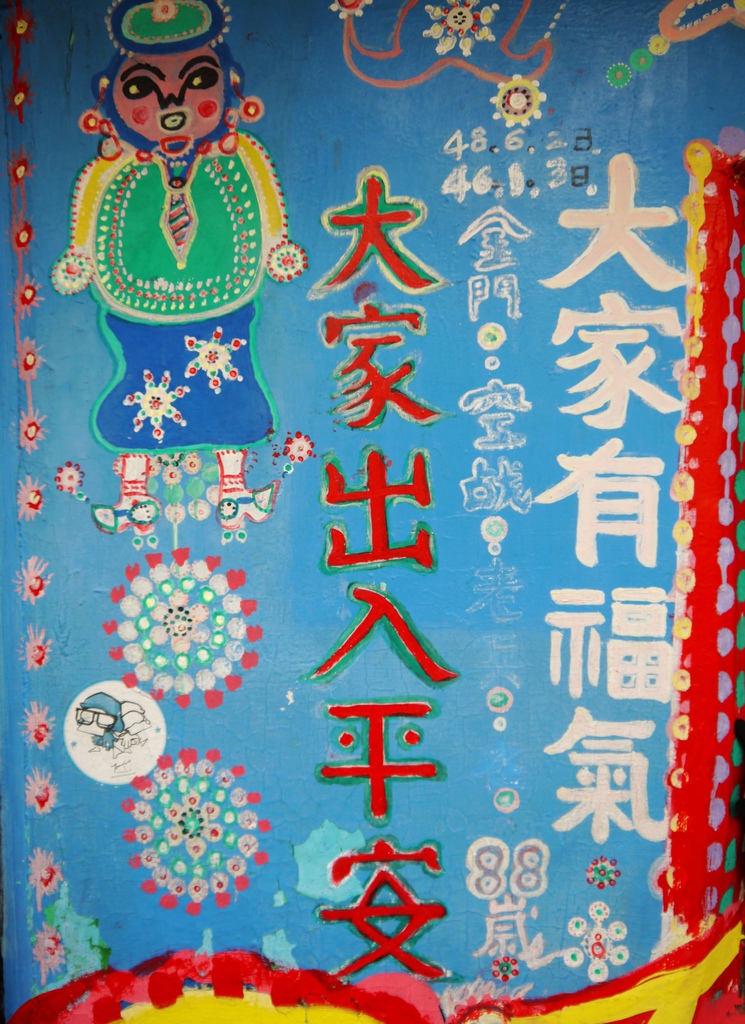 大家有福氣
48.6.23日
46.1.3日.
金門:空战:老兵:
88歲
大家出入平安